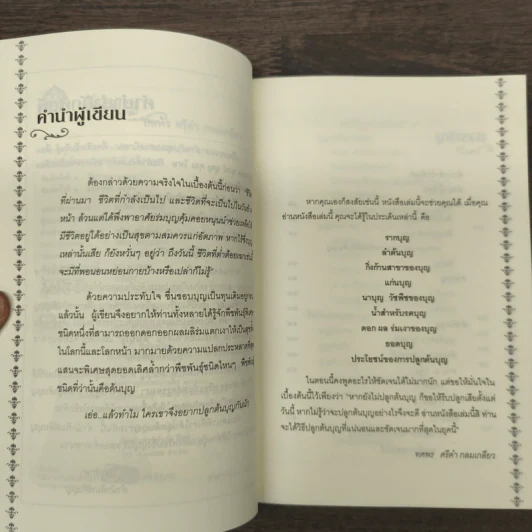 คำนำผู้เขียน
ต้องกล่าวด้วยความจริงใจในเบื้องต้นนี้ก่อนว่า "ชีวิต
ที่ผ่านมา ชีวิตที่กำลังเป็นไป และชีวิตที่จะเป็นไปในวัน
หน้า ล้วนแต่ได้พึ่งพาอาศัยร่มบุญคุ้มคอยหนุนนำช่วย
มีชีวิตอยู่ได้อย่างเป็นสุขตามสมควรแก่อัตภาพ หากใช้
เหล่านั้นเสีย ก็ยังหวั่นๆ อยู่ว่า ถึงวันนี้ ชีวิตที่ต่ำต้อย
จะมีที่พอผ่อนหย่อนกายบ้างหรือเปล่าก็ไม่รู้"
ด้วยความประทับใจ ชื่นชอบบุญเป็นทุนเดิมอยู่
แล้วนั้น ผู้เขียนจึงอยากให้ท่านทั้งหลายได้รู้จักพืชพันธุ์
ชนิดหนึ่งที่สามารถออกดอกออกผลผลิร่มแตกเงาให้เป็นสุข
ในโลกนี้และโลกหน้า มากมายด้วยความแปลกประหลาด
แสนจะพิเศษสุดยอดเลิศล้ำกว่าพืชพันธุ์ชนิดไหนๆ
ชนิดที่ว่านั้นคือต้นบุญ
เอ่อ..แล้วทำไม ใครเขาจึงอยากปลูกต้นบุญกันนัก
หากคุณเองก็สงสัยเช่นนี้ หนังสือเล่มนี้จะช่วยคุณได้ เมื่อคุณ
อ่านหนังสือเล่มนี้ คุณจะได้รู้ในประเด็นเหล่านี้ คือ
รากบุญ
ลำต้นบุญ
กิ่งก้านสาขาของบุญ
แก่นบุญ
นาบุญ วัชพืชของบุญ
น้ำสำหรับรดบุญ
ดอก ผล ร่มเงาของบุญ
ยอดบุญ
ประโยชน์ของการปลูกต้นบุญ
ในตอนนี้คงพูดอะไรให้ชัดเจนได้ไม่มากนัก แต่ขอให้มั่นใจใน
เบื้องต้นนี้ไว้เพียงว่า "หากยังไม่ปลูกต้นบุญ ก็ขอให้รีบปลูกเสียตั้งแต่
วันนี้ หากไม่รู้ว่าจะปลูกต้นบุญอย่างไรจึงจะดี อ่านหนังสือเล่มนี้สิ ท่าน
จะได้วิธีปลูกต้นบุญที่แน่นอนและชัดเจนมากที่สุดในยุคนี้"
ทศพร ศรีคำ กลมเกลียว